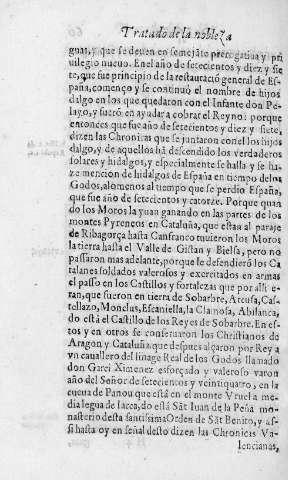 Tratado de la nobleza
guas, y que se deuen en semejāte prerogatiua y pri
uilegio nueuo. En el año de setecientos y diez y sie
te, que fue principio de la restauració general de Es-
paña, començo y se continuó el nombre de hijos
dalgo en los que quedaron con el Infante don Pe-
layo, y fueró en ayuda a cobrar el Reyno: porque
entonces que fue año de setecientos y diez y siete,
dizen las Chronicas que se juntaron con el los hijos
dalgo, y de aquellos há descendido los verdaderos
solares y hidalgos, y especialmente se halla y se ha-
ze mencion de hidalgos de España en tiempo de los
Godos, alomenos al tiempo que se perdio España,
que fue año de setecientos y catorze. Porque quan
do los Moros la yuan ganando en las partes de los
montes Pyreneos en Cataluña, que estan al paraje
de Ribagorça hasta Canfranco tuuieron los Moros
la tierra hasta el Valle de Gistan y Bielsa, pero no
passaron mas adelante, porque le defendieró los Ca
talanes soldados valerosos y exercitados en armas
el passo en los Castillos y fortalezas que por alli e-
stan, que fueron en tierra de Sobarbre, Arcusa, Cas-
tellazo, Monclus, Escaniella, la Clamosa, Abilanca,
do está el Castillo de los Reyes de Sobarbre. En es-
tos y en otros se conseruaron los Christianos de
Aragon y Cataluña: que despues alçaron por Rey a
vn cauallero del linage Real de los Godos llamado
don Garci Ximenez esforçado y valeroso varon
año del Señor de setecientos y veintiquatro, en la
cueua de Panou que está en el monte Vruela me-
dia legua de Iacca, dó está Sāt Iuan de la Peña mo-
nasterio desta santissima Orden de Sāt Benito, y a-
si hasta oy en señal desto dizen las Chronicas Va-
lencianas,